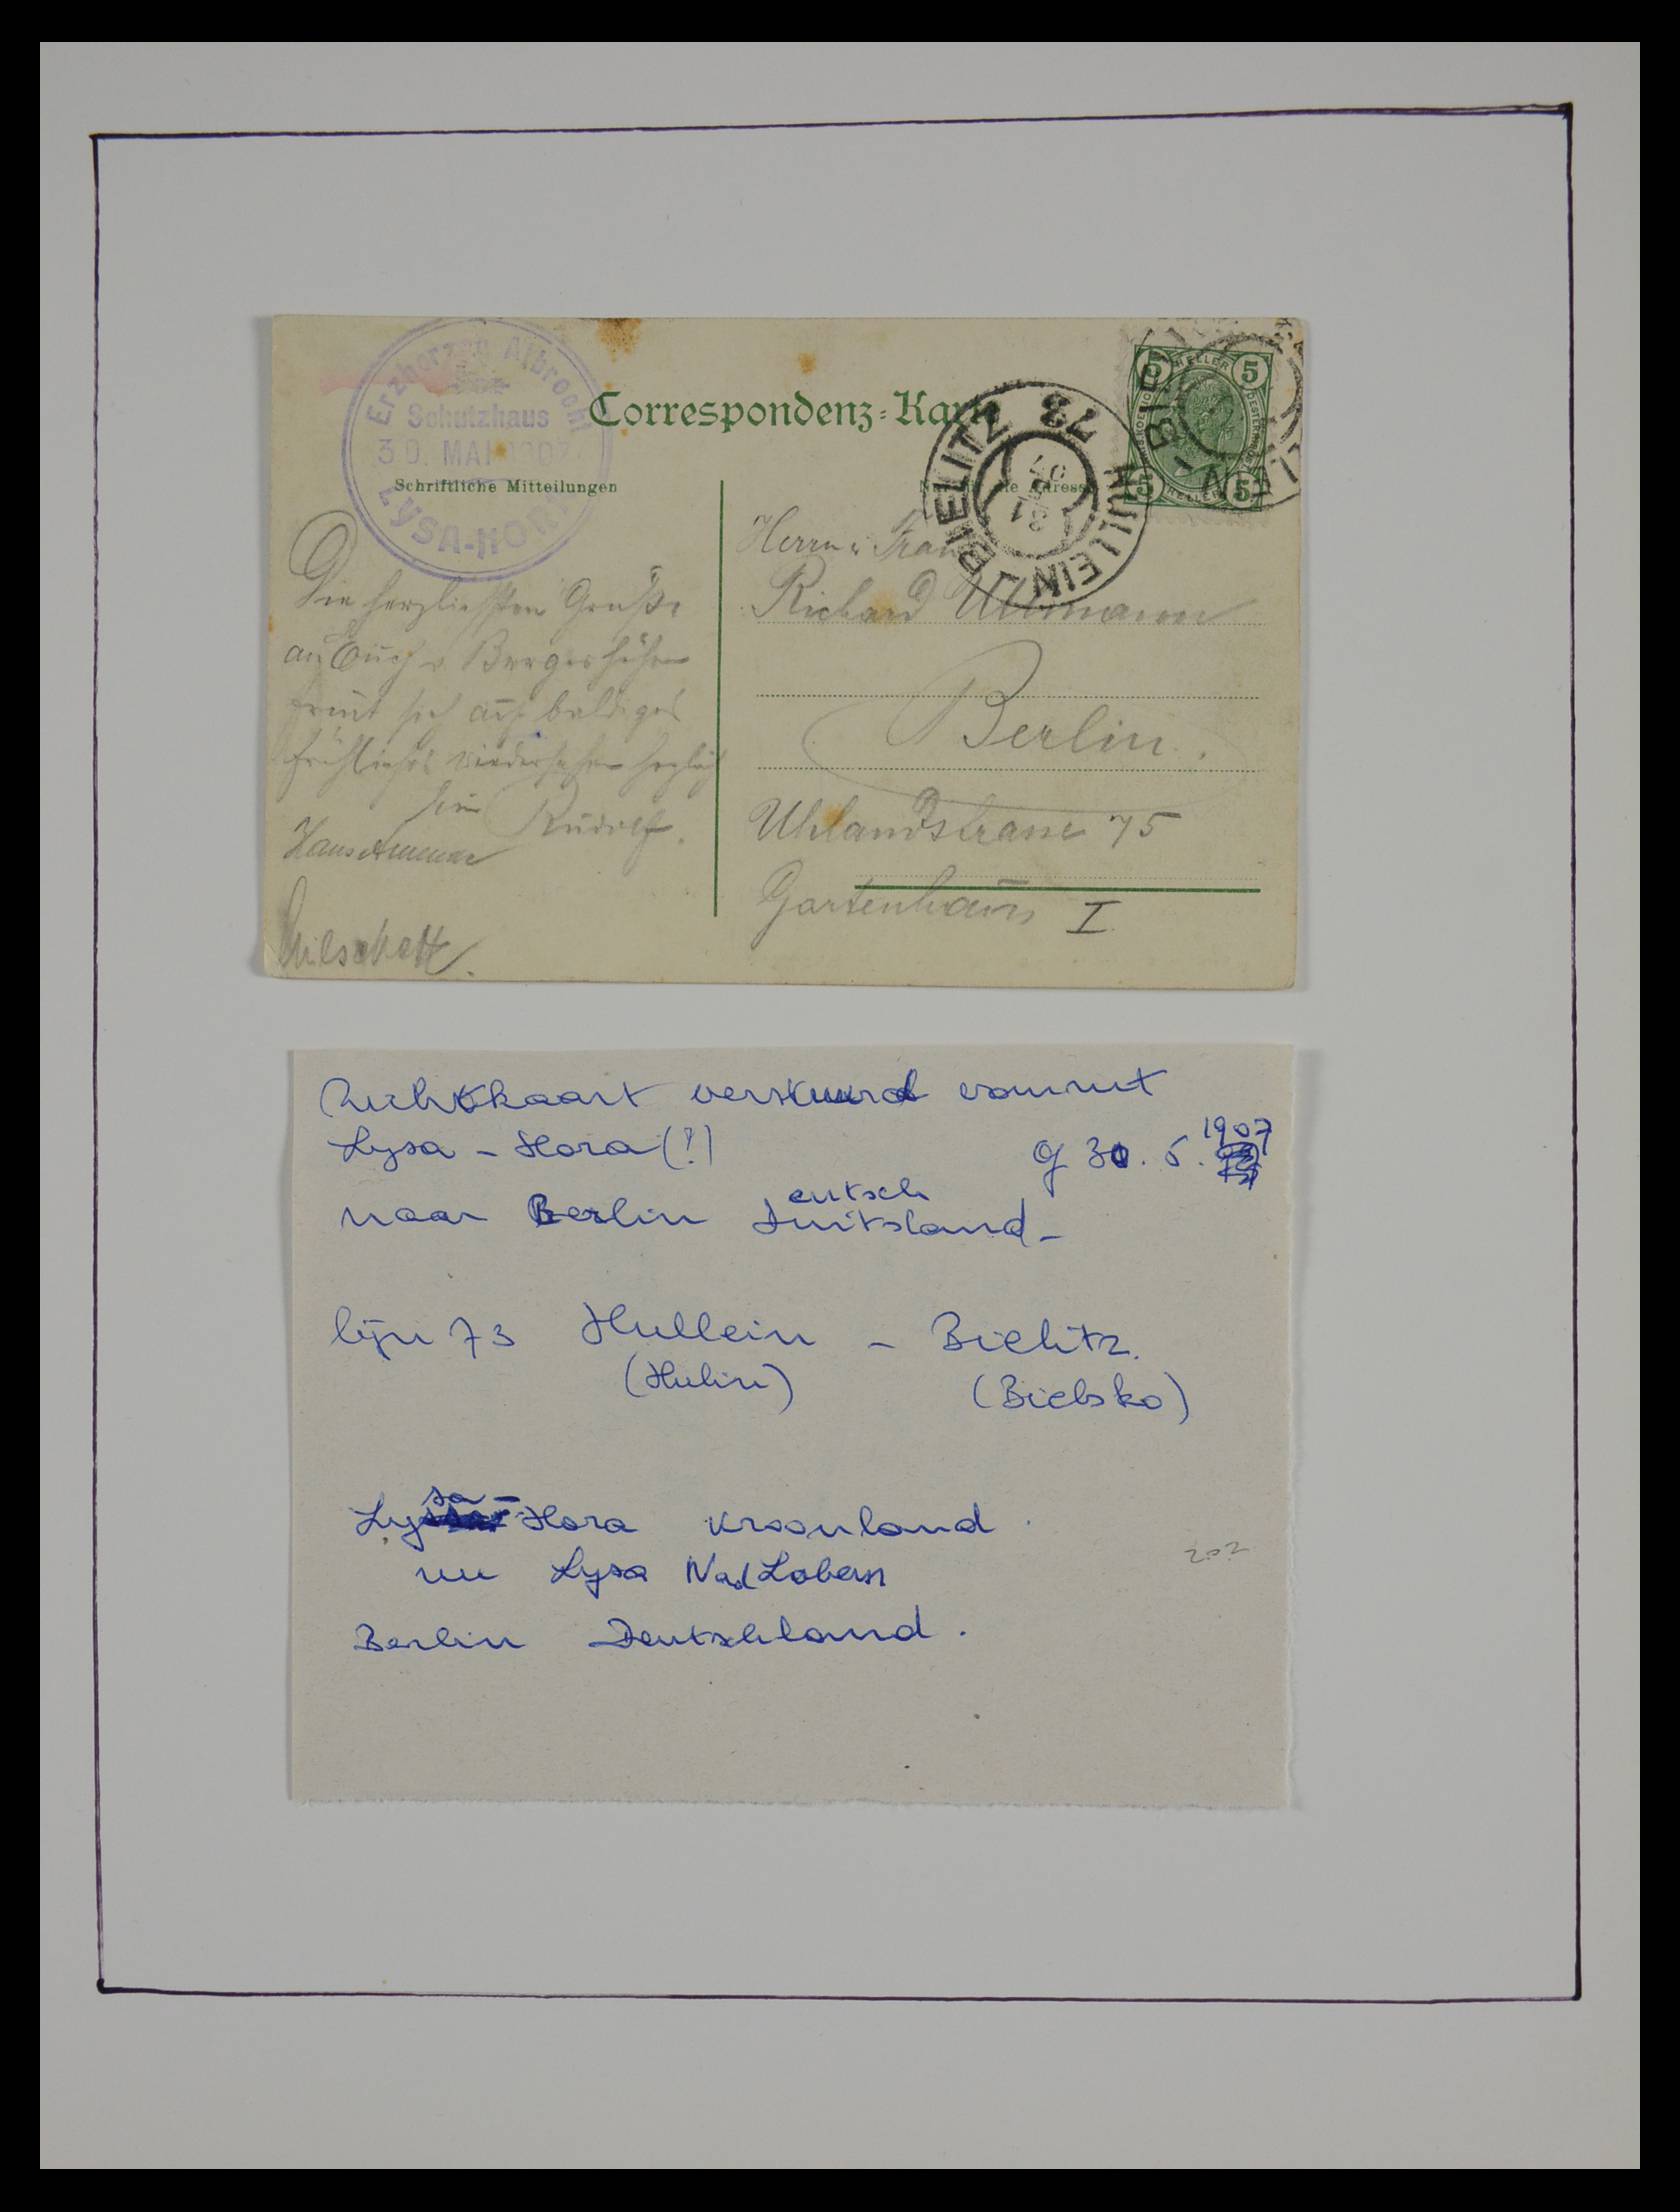 Erzherzog Albrecht
Schutzhaus
30. MAI 1907
LYSA-HORA
Correspondenz-Karte
Schriftliche Mitteilungen
Nur für die Adresse
HULLEIN-BIELITZ 73
31 5 07
5 HELLER 5
5 HELLER 5
Die herzlichsten Grüße
an Euch v. Bergeshöhen
freut sich auf baldiges
fröhliches Wiedersehen herzlich
Rudolf.
Herrn u. Frau
Richard Ullmann
Berlin.
Uhlandstrasse 75
Gartenhaus I
kaart verstuurd vanuit
Lysa - Hora (?) 30. 5. 1907
naar Berlin Duitsland -
eutsch
lijn 73 Hullein - Bielitz.
(Hulin) (Bielsko)
Lysa - Hora kroonland.
nu Lysa Nad Labem
202
Berlin Deutschland.